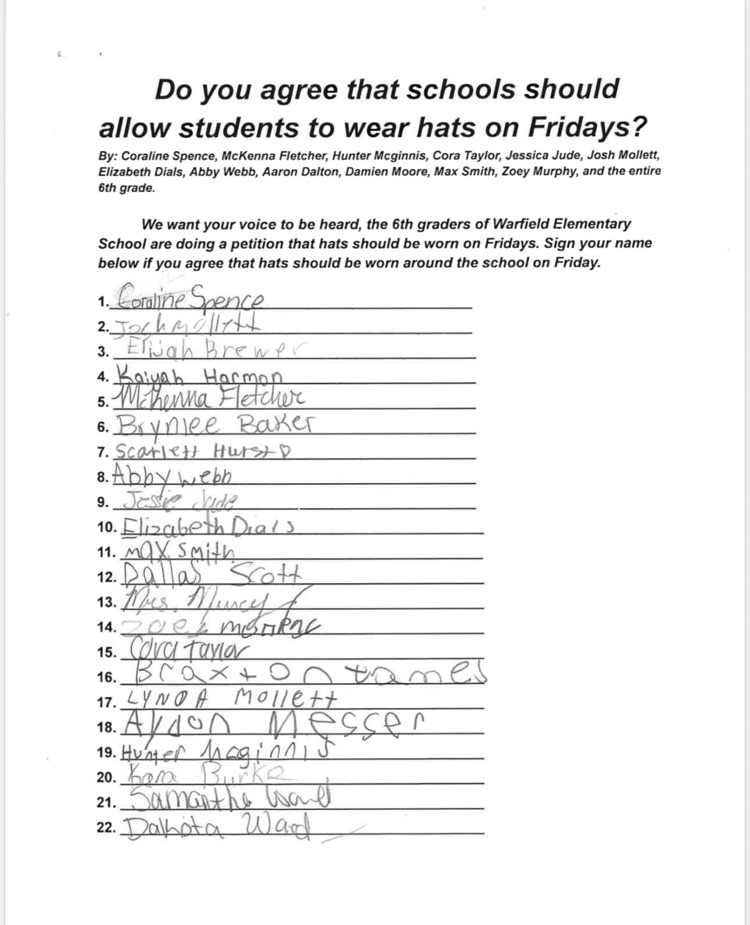 Do you agree that schools should
allow students to wear hats on Fridays?
By: Coraline Spence, McKenna Fletcher, Hunter Mcginnis, Cora Taylor, Jessica Jude, Josh Mollett,
Elizabeth Dials, Abby Webb, Aaron Dalton, Damien Moore, Max Smith, Zoey Murphy, and the entire
6th grade.
We want your voice to be heard, the 6th graders of Warfield Elementary
School are doing a petition that hats should be worn on Fridays. Sign your name
below if you agree that hats should be worn around the school on Friday.
1. Coraline Spence
2. Josh Mollett
3. Elijah Brewer
4. Kaiyah Harmon
5. McKenna Fletcher
6. Brynlee Baker
7. Scarlett Hurst
8. Abby Webb
9. Jude
10. Elizabeth Dials
11. Max Smith
12. Dallas Scott
13. Mrs. Muncy
14.
15. Cora Taylor
16. Braxton James
17. LYNDA Mollett
18. Messer
19. Hunter Mcginnis
20. Kara Burke
21. Samantha Ward
22. Dakota Ward